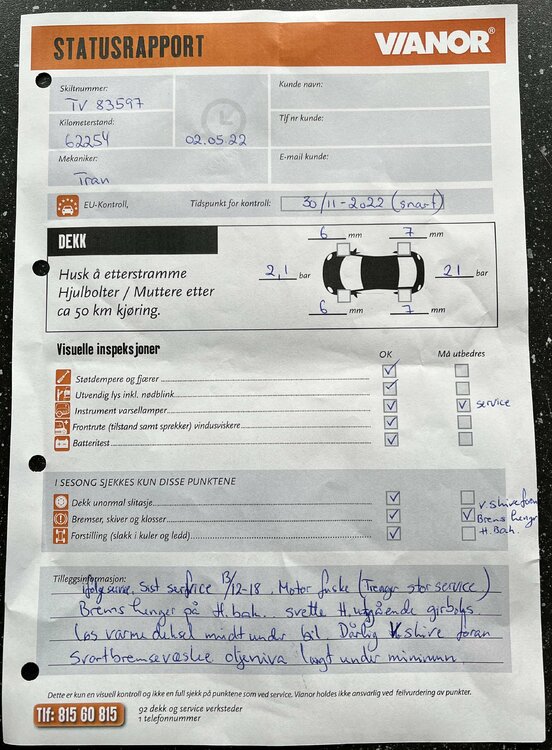 STATUSRAPPORT
VIANOR®
Skiltnummer:
TV 83597
Kilometerstand:
62254
02.05.22
Mekaniker:
Tran
Kunde navn:
Tlf nr kunde:
E-mail kunde:
EU-Kontroll,
Tidspunkt for kontroll:
30/11-2022 (snart)
DEKK
Husk å etterstramme
Hjulbolter / Muttere etter
ca 50 km kjøring.
6 mm
7 mm
2,1 bar
21 bar
6 mm
7 mm
Visuelle inspeksjoner
OK
Må utbedres
Støtdempere og fjærer
Utvendig lys inkl. nødblink
Instrument varsellamper
service
Frontrute (tilstand samt sprekker) vindusviskere
Batteritest
I SESONG SJEKKES KUN DISSE PUNKTENE
Dekk unormal slitasje
V. skive foran
Bremser, skiver og klosser
Brems henger
H. Bak.
Forstilling (slakk i kuler og ledd)
Tilleggsinformasjon:
ifølge sist serfvice 13/12-18. Motor fuske (Trenger stor service)
Brems henger på H. bak. svette H. utgående girboks
løs varme deksel midt under bil. Dårlig V. skive foran
Svart bremsevæske. oljenivå langt under minimun.
Dette er kun en visuell kontroll og ikke en full sjekk på punktene som ved service. Vianor holdes ikke ansvarlig ved feilvurdering av punkter.
Tlf: 815 60 815
92 dekk og service verksteder
1 telefonnummer